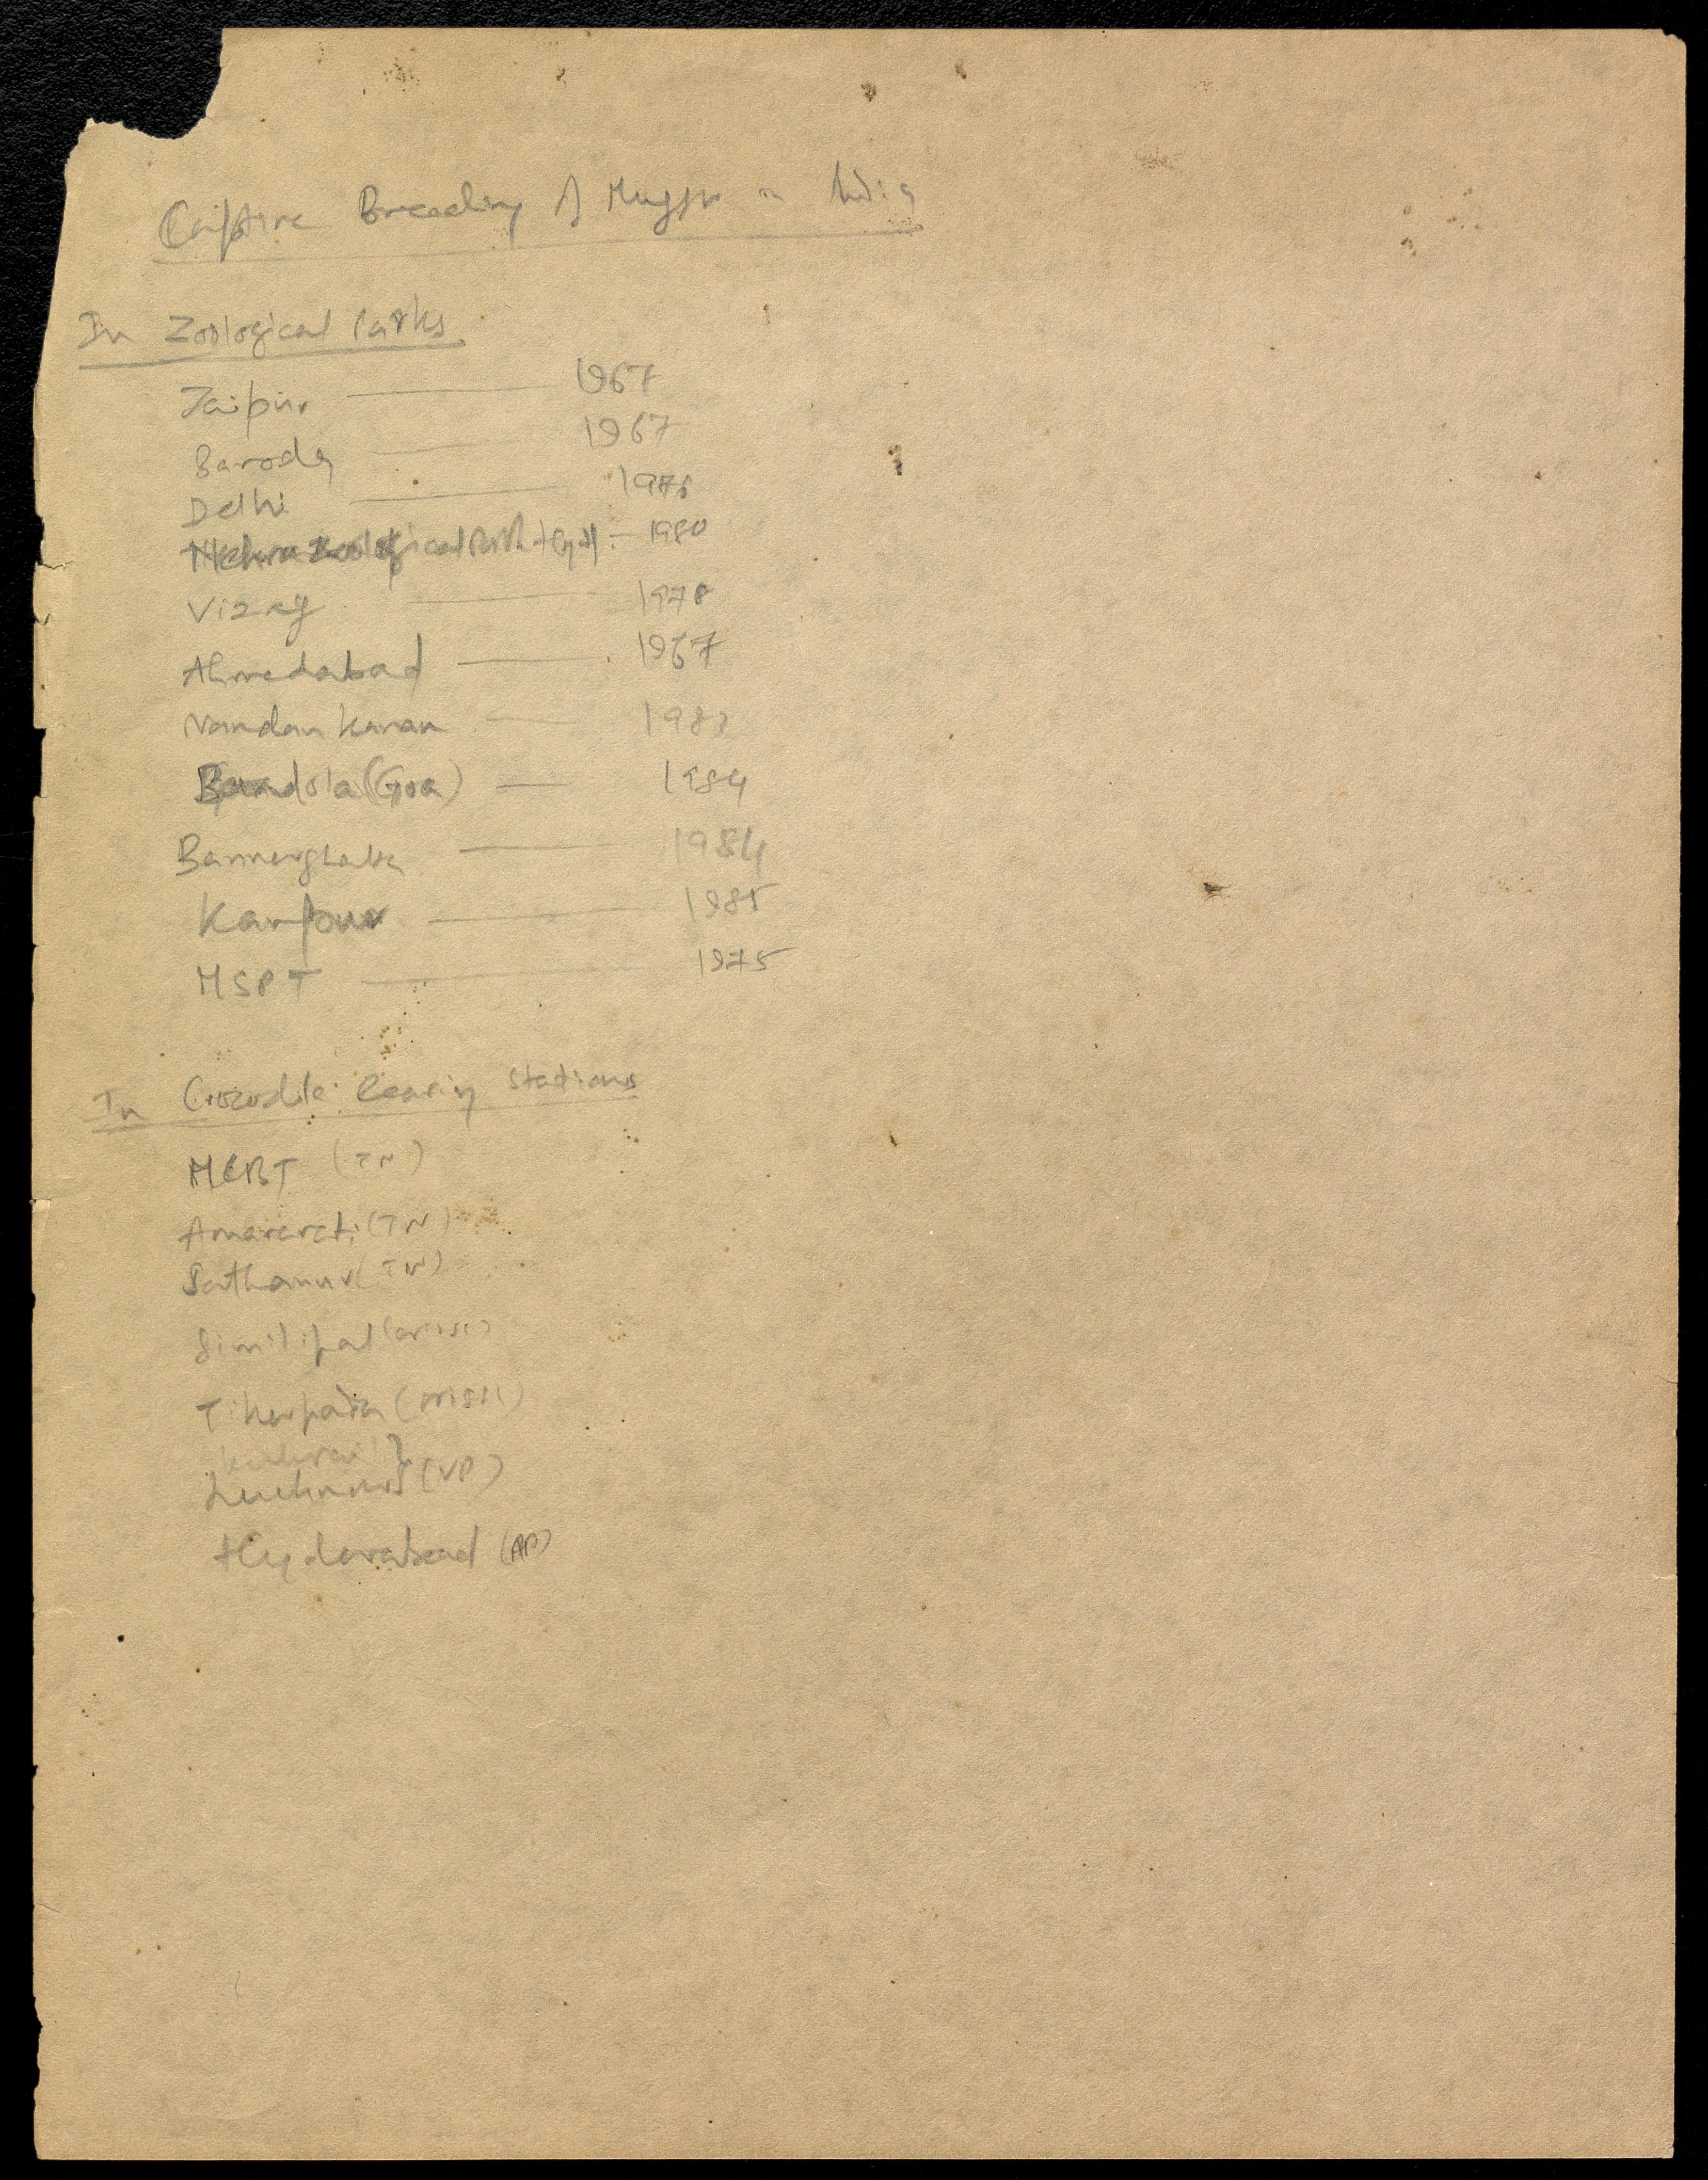 Captive Breeding of Mugger in India
In Zoological Parks
Jaipur — 1967
Baroda — 1967
Delhi — 1975
Nehru Zoological Park Hyd — 1980
Vizag — 1978
Ahmedabad — 1967
Nandankanan — 1983
Bondola (Goa) — 1984
Bannerghatta — 1984
Kanpur — 1985
MSPT — 1975
In Crocodile Rearing Stations
MCBT (TN)
Amaravati (TN)
Sathanur (TN)
Similipal (Orissa)
Tikerpada (Orissa)
Kukrail }
Lucknow (UP)
Hyderabad (AP)